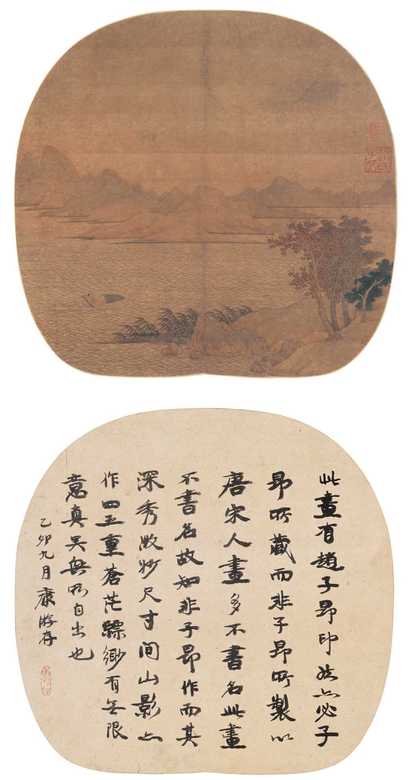 此畫有趙子昂印然亦必子
昂所藏而非子昂所製以
唐宋人畫多不書名此畫
不書名故知非子昂作而其
深秀微妙尺寸間山影亦
作四五重蒼茫緜緲有無限
意真吳興所自出也
乙卯九月康游存